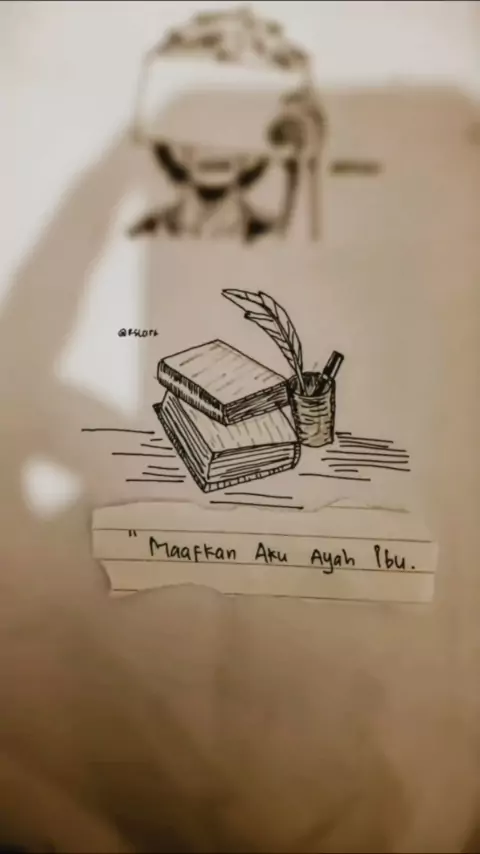 " Maafkan Aku Ayah Ibu.